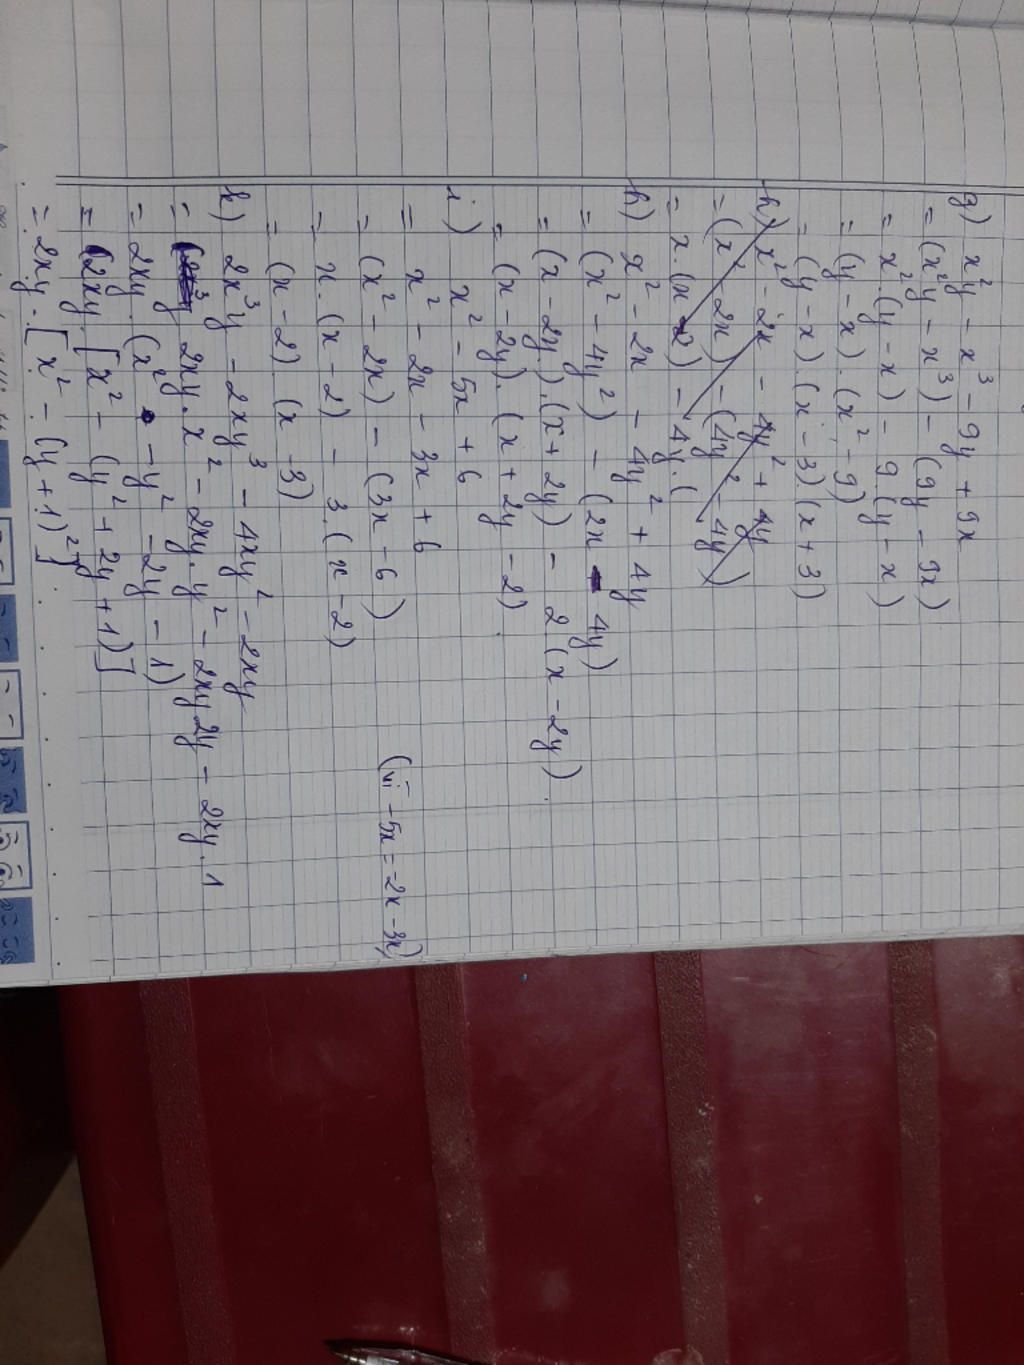 g) x²y - x³ - 9y + 9x
= (x²y - x³) - (9y - 9x)
= x².(y - x) - 9.(y - x)
= (y - x).(x² - 9)
= (y - x).(x - 3)(x + 3)
h) x² - 2x - 4y² + 4y
= (x² - 2x) - (4y² - 4y)
= x.(x - 2) - 4y.(
h) x² - 2x - 4y² + 4y
= (x² - 4y²) - (2x - 4y)
= (x - 2y).(x + 2y) - 2(x - 2y).
= (x - 2y).(x + 2y - 2).
i) x² - 5x + 6
= x² - 2x - 3x + 6 (vì -5x = -2x - 3x)
= (x² - 2x) - (3x - 6)
= x.(x - 2) - 3.(x - 2)
= (x - 2).(x - 3)
k) 2x³y - 2xy³ - 4xy² - 2xy
= 2xy.x² - 2xy.y² - 2xy.2y - 2xy.1
= 2xy.(x² - y² - 2y - 1)
= 2xy.[x² - (y² + 2y + 1)]
= 2xy.[x² - (y + 1)²]